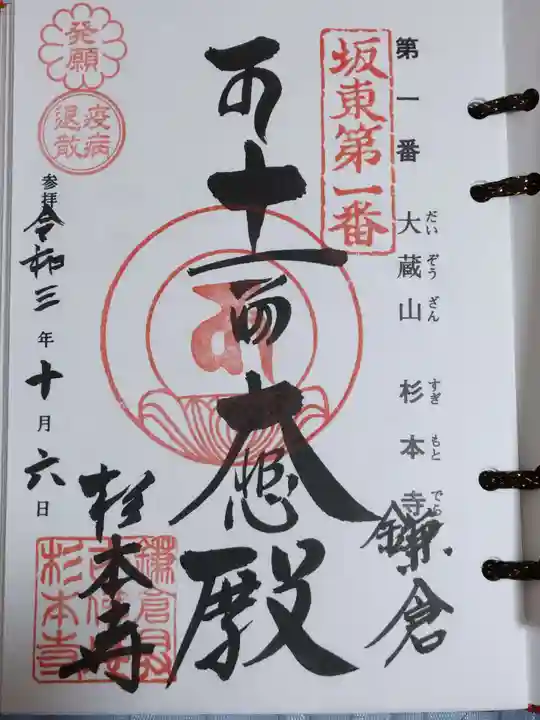 第一番 大蔵山 杉本寺
だいぞうざん すぎもとでら
鎌倉
坂東第一番
十一面大悲殿
発願
疫病
退散
参拝 令和三年十月六日
杉本寺